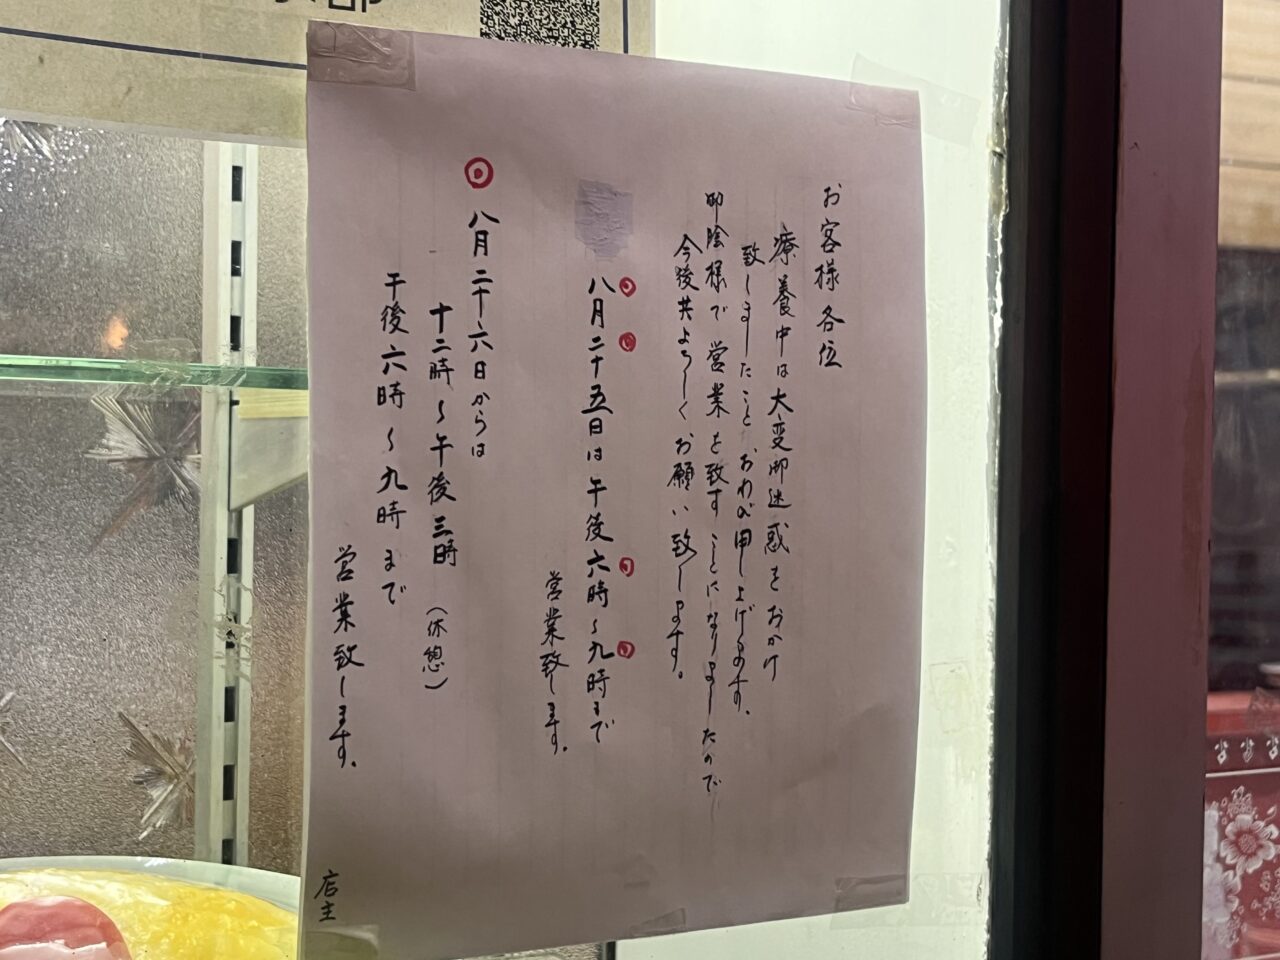 お客様各位
療養中は大変御迷惑をおかけ
致しましたことおわび申し上げます。
御陰様で営業を致すことになりましたので
今後共よろしくお願い致します。
八月二十五日は午後六時～九時まで
営業致します。
◎八月二十六日からは
十二時～午後三時(休憩)
午後六時～九時まで
営業致します。
店主